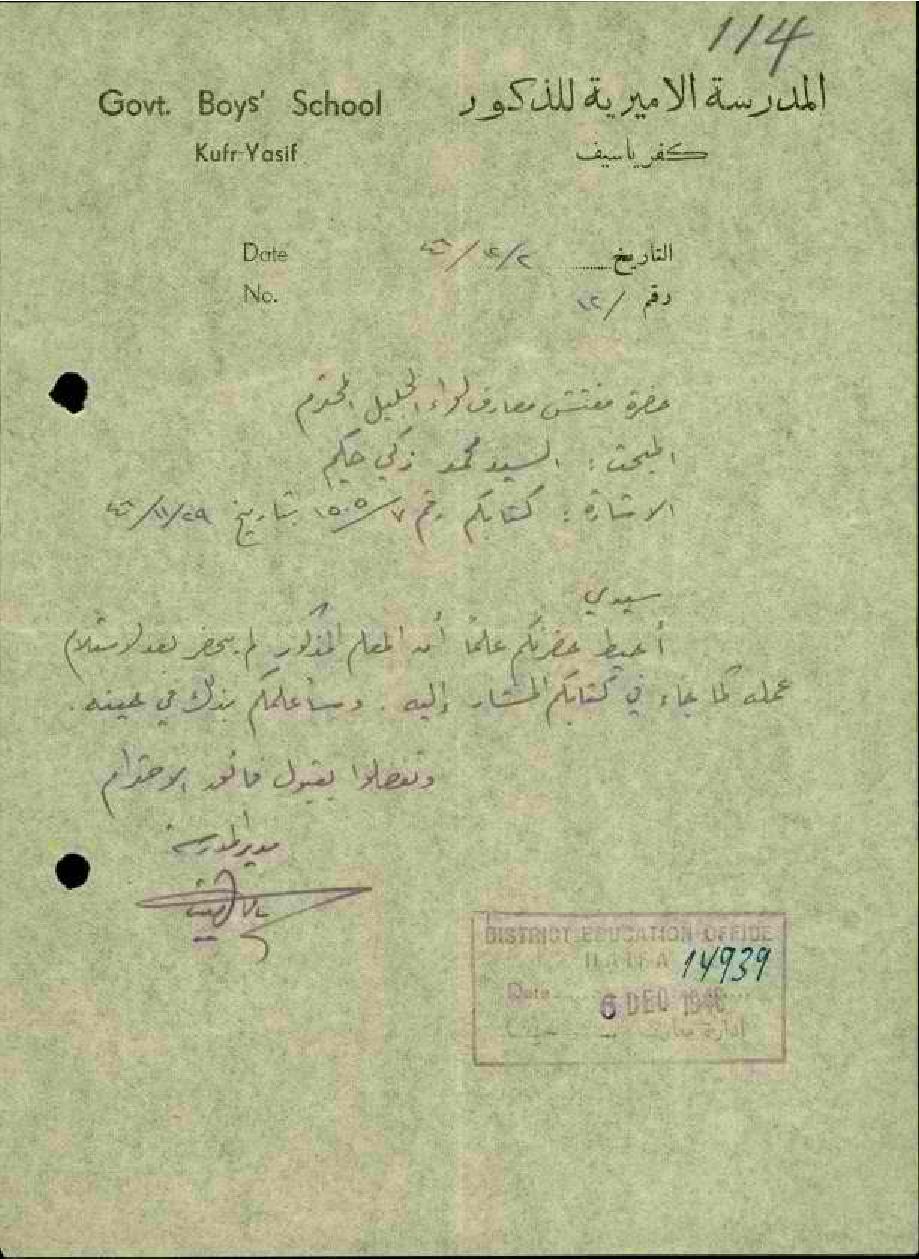 114
Govt. Boys' School المدرسة الاميرية للذكور
Kufr-Yasif كفر ياسيف
Date التاريخ ٤٦/١٢/٢
No. رقم / ١٢
حضرة مفتش معارف لواء الجليل المحترم
المبحث: السيد محمد زكي حكيم
الاشارة: كتابكم رقم ١٥٠٥/٧ بتاريخ ٤٦/١١/٢٩
سيدي
أحيط حضرتكم علماً أن المعلم المذكور لم يحضر بعد لاستلام
عمله كما جاء في كتابكم المشار إليه. وسأعلمكم بذلك في حينه.
وتفضلوا بقبول فائق الاحترام
مدير المدرسة
DISTRICT EDUCATION OFFICE
HAIFA 14939
Date 6 DEC 1946
ادارة معارف